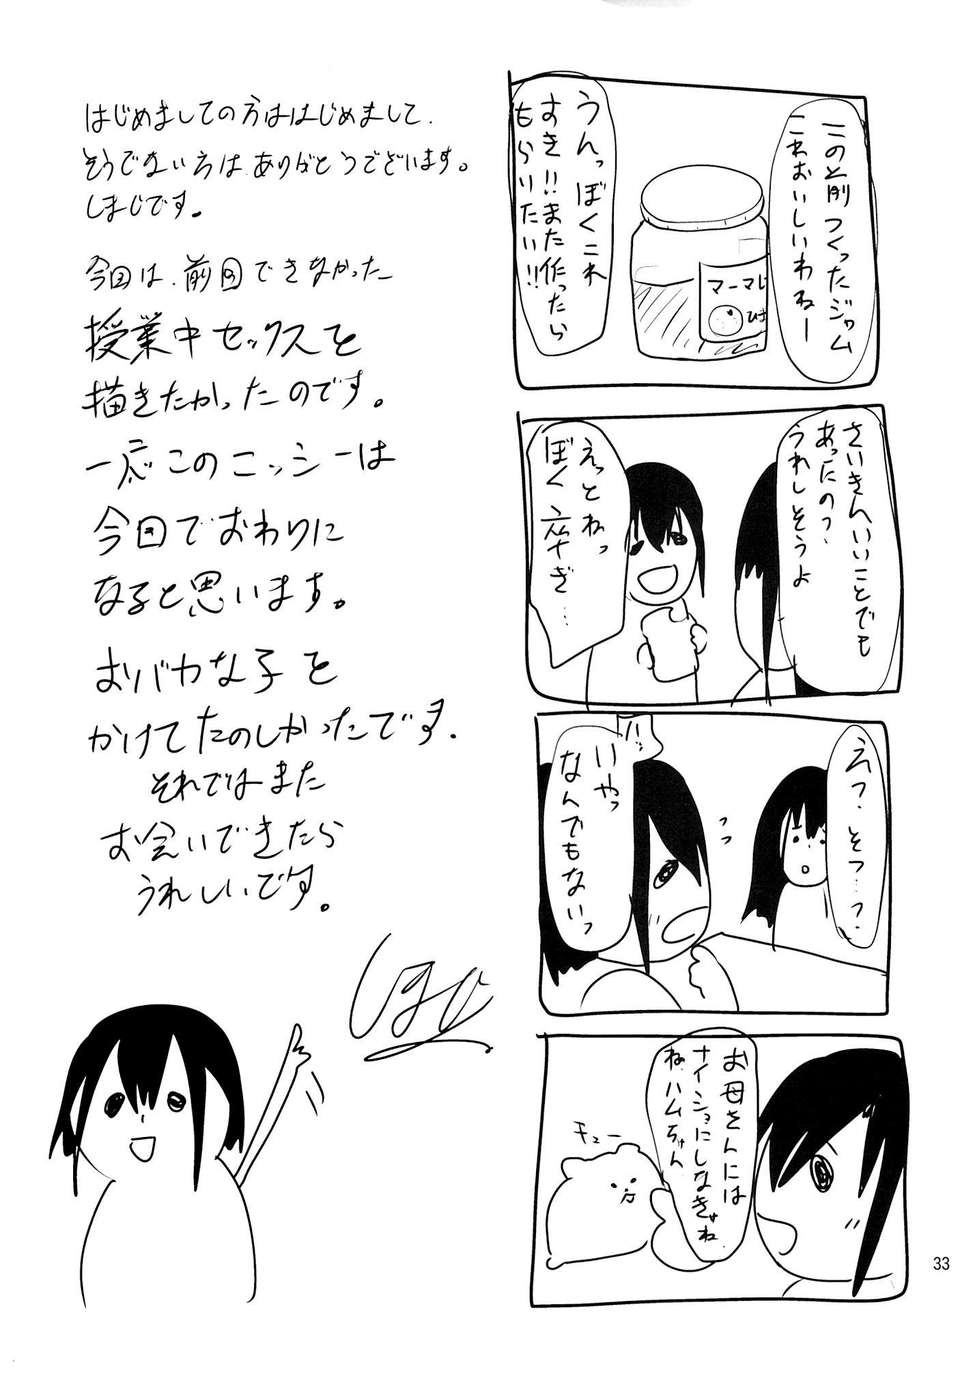 この前つくったジャム
これおいしいわねー
うんっぼくこれ
すき!!また作ったら
もらいたい!!
マーマレ
さいきんいいことでも
あったの?
うれしそうよ
えっとねっ
ぼく
えっ?そっ…?
ハッ
いやっ
なんでもないっ
お母さんには
ナイショにしなきゃね
ね、ハムちゃん
チュー
はじめましての方ははじめまして、
そうでない方はありがとうございます。
しまじです。
今回は、前回できなかった
授業中セックスを
描きたかったのです。
一応このニッシーは
今回でおわりに
なると思います。
おバカな子を
かけてたのしかったです。
それではまた
お会いできたら
うれしいです。
33